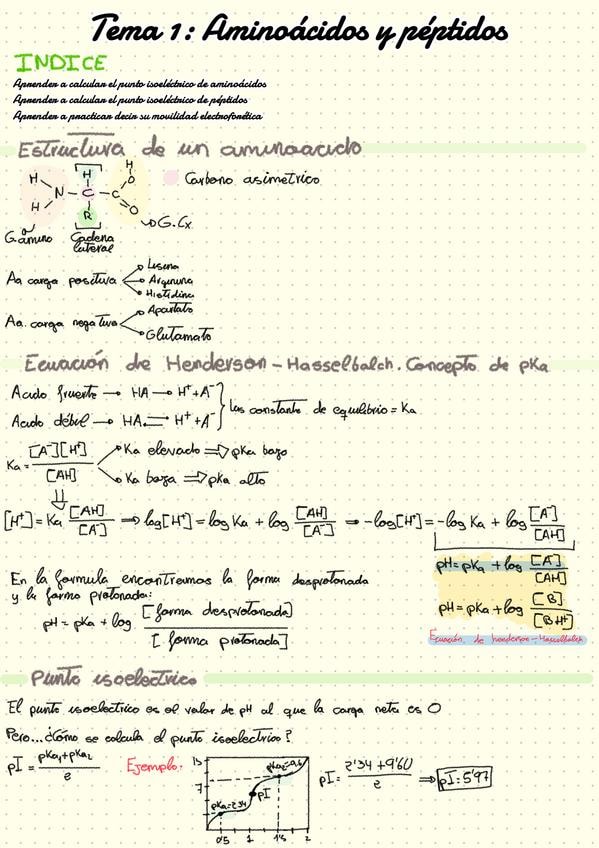 Tema 1: Aminoácidos y péptidos
INDICE
Aprender a calcular el punto isoeléctrico de aminoácidos
Aprender a calcular el punto isoeléctrico de péptidos
Aprender a practicar decir su movilidad electroforética
Estructura de un aminoacido
H H H O
N - C - C
H R O
Carbono asimetrico
G. Cx
G. amino Cadena lateral
Aa carga positiva
Lisina
Arginina
Histidina
Aa. carga negativa
Apartato
Glutamato
Ecuación de Henderson - Hasselbalch. Concepto de pKa
Acido fruerte → HA → H⁺ + A⁻
Acido débil → HA ⇌ H⁺ + A⁻
Las constante de equilibrio = Ka
Ka = [A⁻][H⁺] / [AH]
Ka elevado ⇒ pKa bajo
Ka baja ⇒ pKa alto
[H⁺] = Ka [AH] / [A⁻] ⇒ log[H⁺] = log Ka + log [AH] / [A⁻] ⇒ -log[H⁺] = -log Ka + log [A⁻] / [AH]
pH = pKa + log [A⁻] / [AH]
pH = pKa + log [B] / [BH⁺]
Ecuación de henderson-Hasselbalch
En la formula encontramos la forma desprotonada
y la forma protonada:
pH = pKa + log [forma desprotonada] / [forma protonada]
Punto isoelectrico
El punto isoelectrico es el valor de pH al que la carga neta es 0
Pero... ¿Cómo se calcula el punto isoelectrico?
pI = pKa1 + pKa2 / 2
Ejemplo:
13
7
pKa2=9,6
pI
pKa=2'34
0'5 1 1'5 2
pI = 2'34 + 9'60 / 2 ⇒ pI: 5'97